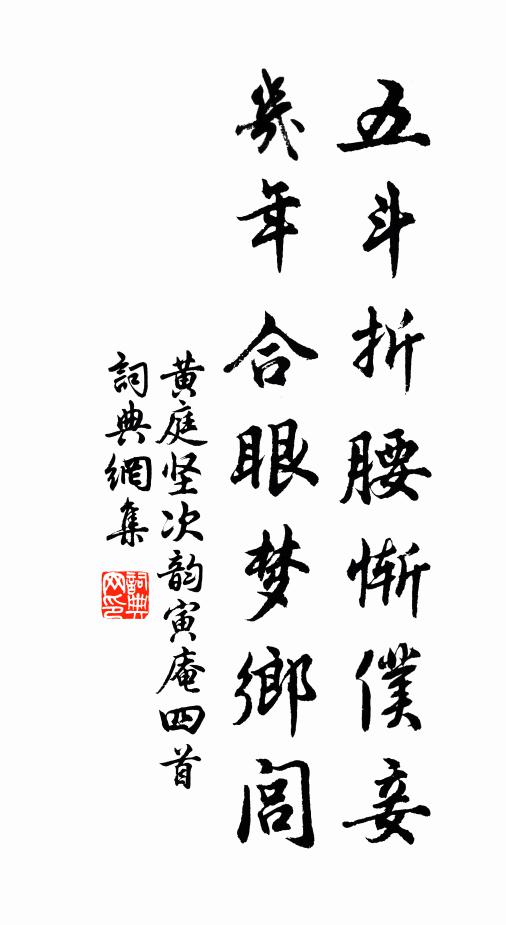 五斗折腰惭僕妾
幾年合眼梦鄉閭
黄庭坚次韵寅庵四首
詞典網集
詞典网印